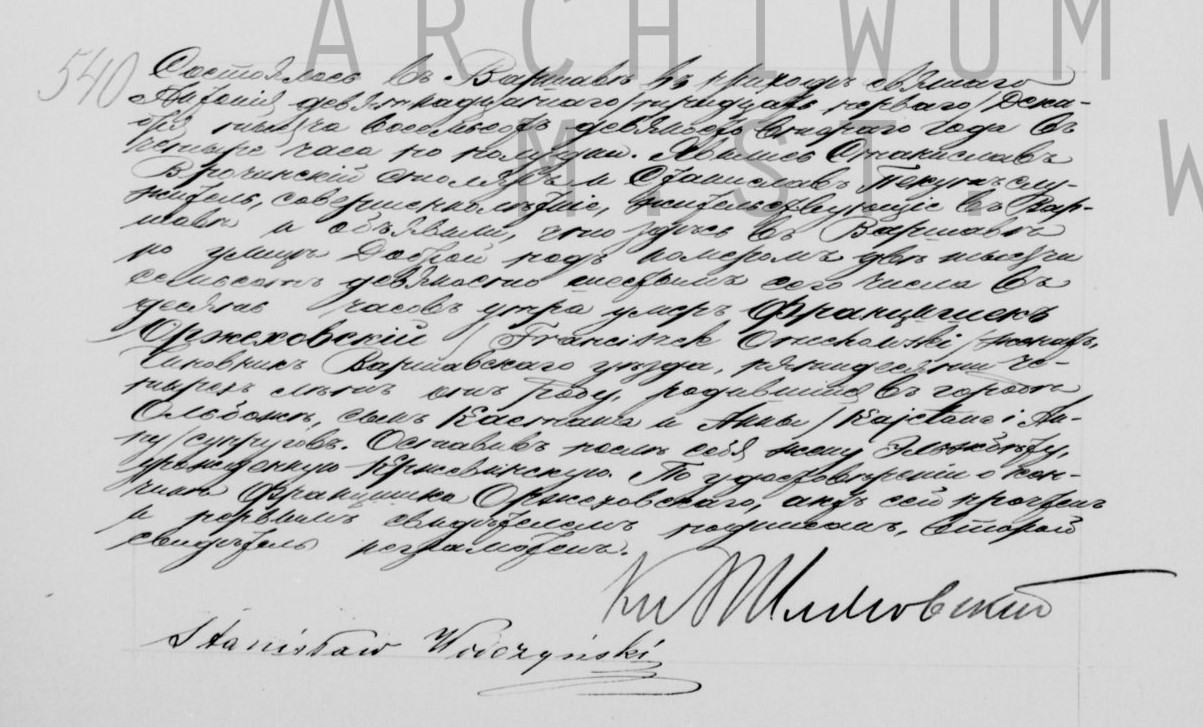 ARCHIWUM
M. ST. W
540
Состоялось въ Варшавѣ въ приходѣ святаго
Антонія девятнадцатаго /тридцать перваго/ Дека-
бря тысяча восемьсотъ девяносто втораго года въ
четыре часа по полудни. Явились Станиславъ
столяръ и Станиславъ слу-
житель, совершеннолѣтніе, жительствующіе въ Вар-
шавѣ и объявили, что здѣсь въ Варшавѣ
по улицѣ Доброй подъ номеромъ двѣ тысячи
семьсотъ девяносто шестымъ сего числа въ
десять часовъ утра умеръ Францишекъ
Оржеховскій /Franciszek Orzechowski/ женатъ,
чиновникъ Варшавскаго уѣзда, пятидесяти че-
тырехъ лѣтъ отъ роду, родившійся въ городѣ
сынъ Каетана и Анны /Kajetana i An-
ny/ супруговъ. Оставивъ послѣ себя жену Эльжбету,
урожденную По удостовѣреніи о кон-
чинѣ Францишка Оржеховскаго, актъ сей прочтенъ
и первымъ свидѣтелемъ подписанъ, второй
свидѣтель неграмотенъ.
Stanisław